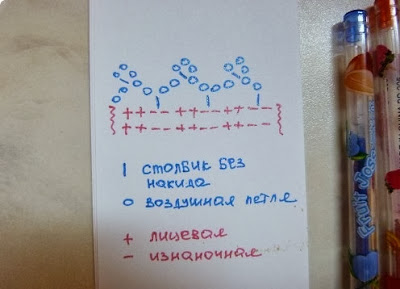 ++--++--++--
++--++--++--
| столбик без
накида
o воздушная петля
+ лицевая
- изнаночная